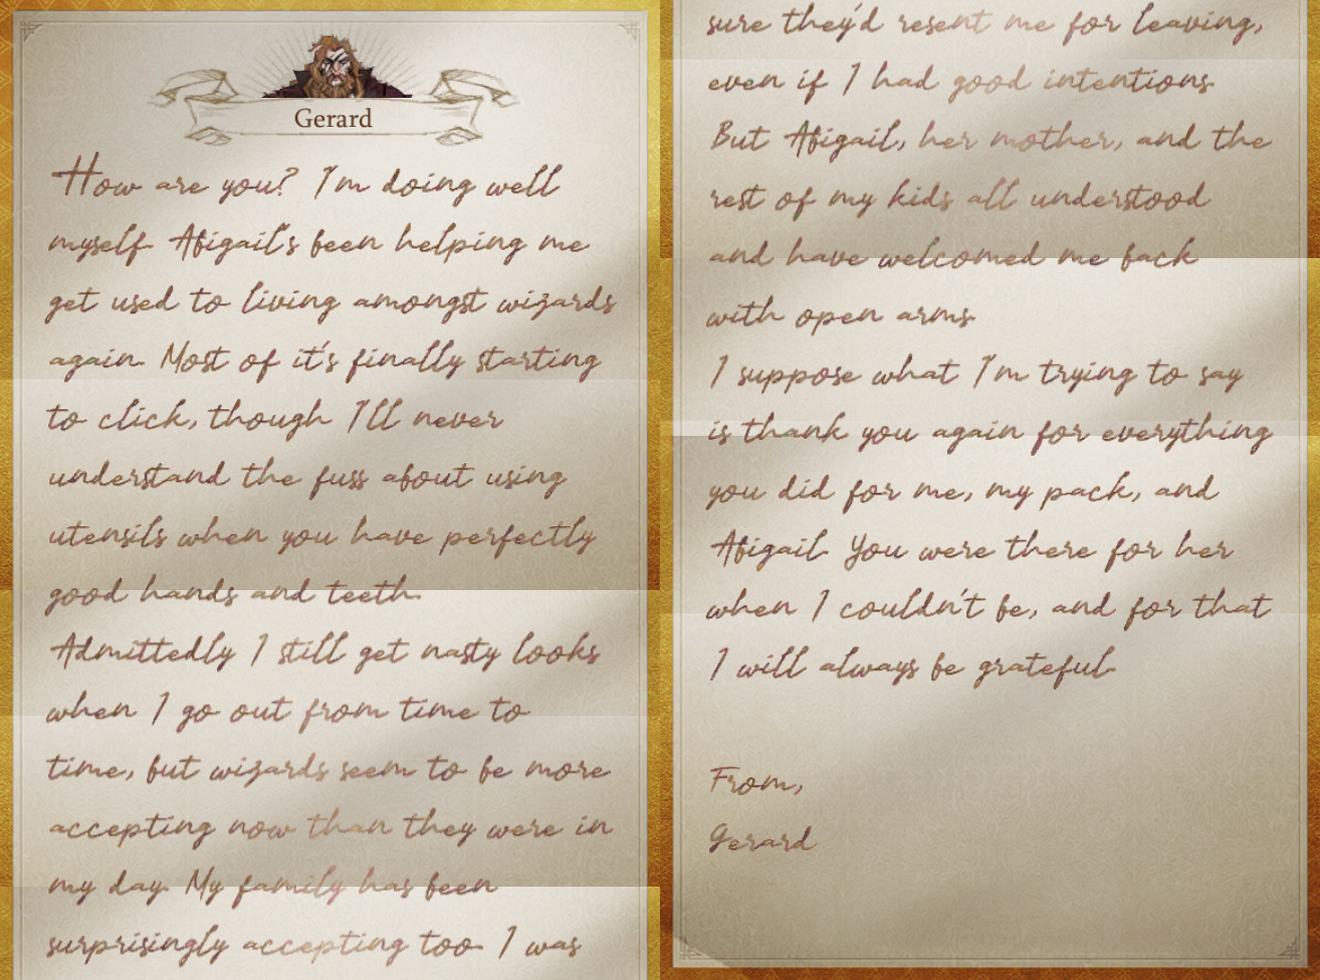 Gerard
How are you? I'm doing well
myself. Abigail's been helping me
get used to living amongst wizards
again. Most of it's finally starting
to click, though I'll never
understand the fuss about using
utensils when you have perfectly
good hands and teeth.
Admittedly I still get nasty looks
when I go out from time to
time, but wizards seem to be more
accepting now than they were in
my day. My family has been
surprisingly accepting too. I was
sure they'd resent me for leaving,
even if I had good intentions.
But Abigail, her mother, and the
rest of my kids all understood
and have welcomed me back
with open arms.
I suppose what I'm trying to say
is thank you again for everything
you did for me, my pack, and
Abigail. You were there for her
when I couldn't be, and for that
I will always be grateful.
From,
Gerard